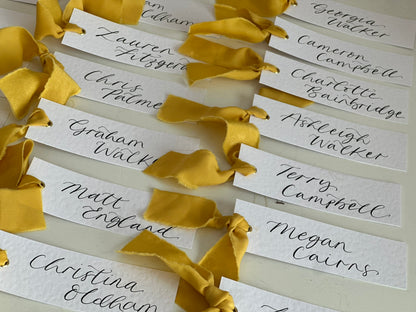 Oldham
Lauren
Chris
Palmer
Graham
Matt
England
Christina
Oldham
Georgia
Walker
Cameron
Campbell
Charlotte
Bainbridge
Ashleigh
Walker
Terry
Campbell
Megan
Cairns